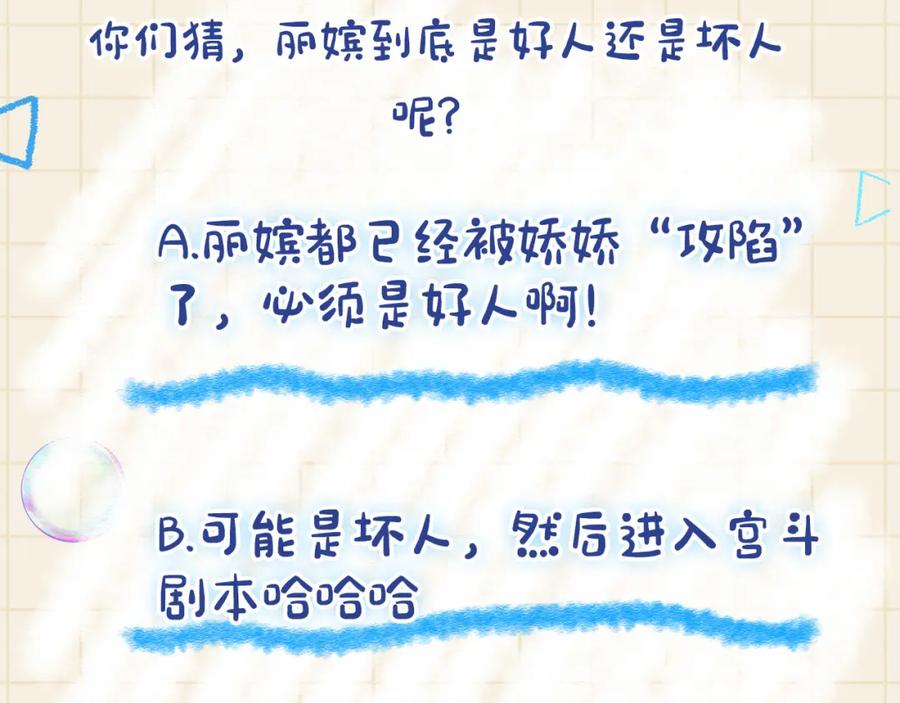 你们猜，丽嫔到底是好人还是坏人
呢?
A.丽嫔都已经被娇娇“攻陷”
了，必须是好人啊!
B.可能是坏人，然后进入宫斗
剧本哈哈哈